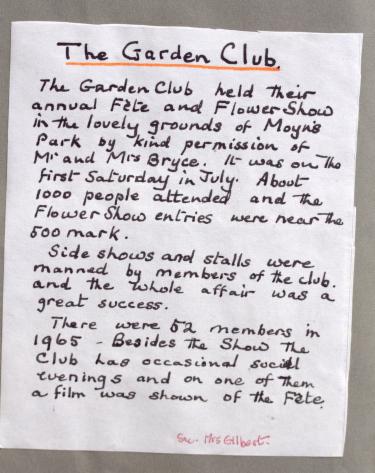 The Garden Club.
The Garden Club held their
annual Fête and Flower Show
in the lovely grounds of Moyns
Park by kind permission of
Mr and Mrs Bryce. It was on the
first Saturday in July. About
1000 people attended and the
Flower Show entries were near the
500 mark.
Side shows and stalls were
manned by members of the club.
and the whole affair was a
great success.
There were 52 members in
1965 - Besides the Show the
Club has occasional social
evenings and on one of them
a film was shown of the Fête.
Sec. Mrs Gilbert.